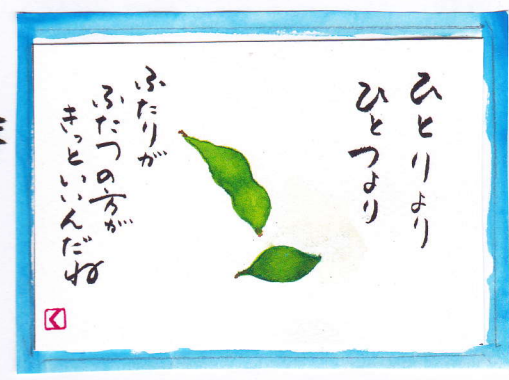 ひとりより
ひとつより
ふたりが
ふたつの方が
きっといいんだね
く